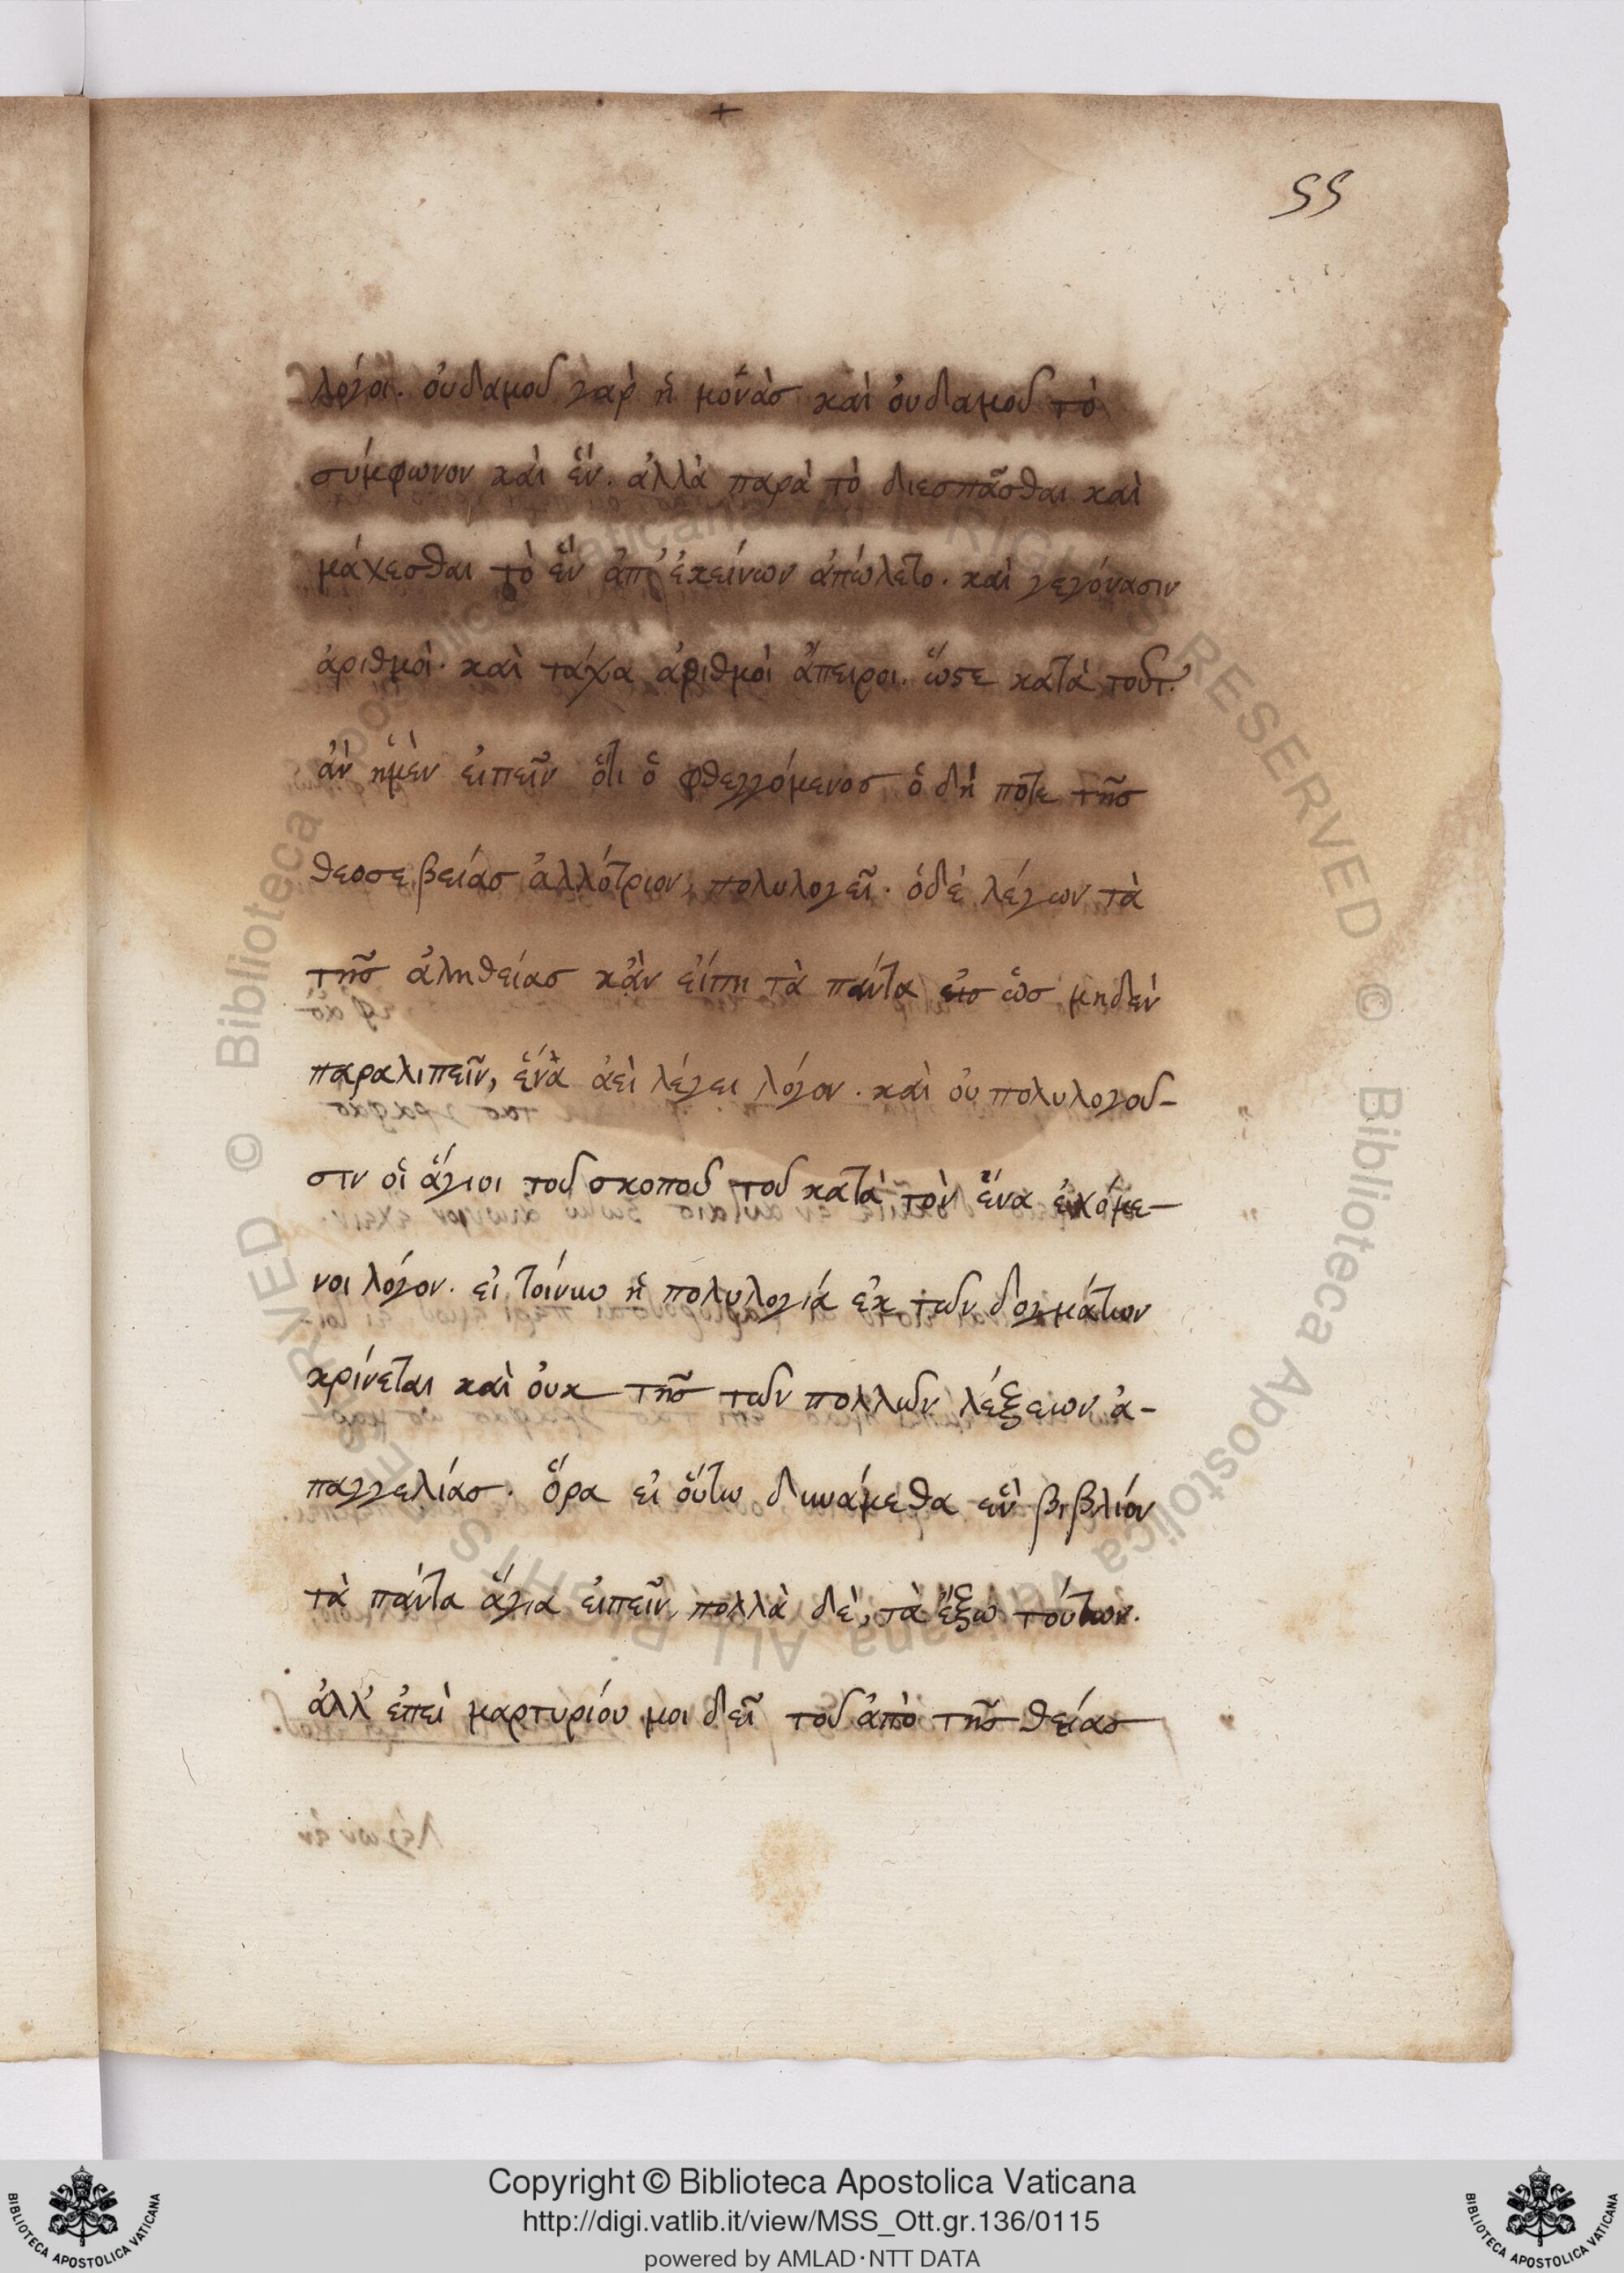 55
λόγοι. ὀυδαμοῦ γὰρ ἡ μονὰσ καὶ ὀυδαμοῦ τὸ
σύμφωνον καὶ ἕν. ἀλλὰ παρὰ τὸ διεσπᾶσθαι καὶ
μάχεσθαι τὸ ἓν ἀπ' ἐκείνων ἀπώλετο. καὶ γεγόνασιν
ἀριθμοὶ. καὶ τάχα ἀριθμοὶ ἄπειροι. ὥστε κατὰ τοῦτ
ἂν ἡμὲν ἐιπεῖν ὅτι ὁ φθεγγόμενοσ ὁ δή ποτε τῆσ
θεοσεβείασ ἀλλότριον, πολυλογεῖ. ὁδὲ λέγων τὰ
τῆσ ἀληθείασ κἂν εἴπη τὰ πάντα ὡσ μηδὲν
παραλιπεῖν, ἕνα ἀεὶ λέγει λόγον. καὶ ὀυ πολυλογοῦ-
σιν οἱ ἅγιοι τοῦ σκοποῦ τοῦ κατὰ τὸν ἕνα ἐχόμε-
νοι λόγον. ἐι τοίνυν ἡ πολυλογία ἐκ τῶν δογμάτων
κρίνεται καὶ ὀυκ τῆσ τῶν πολλῶν λέξεων ἀ-
παγγελίασ. ὅρα ἐι ὅυτω δυνάμεθα ἓν βιβλίον
τὰ πάντα ἅγια ἐιπεῖν, πολλὰ δὲ, τὰ ἔξω τούτων.
ἀλλ' ἐπεὶ μαρτυρίου μοι δεῖ τοῦ ἀπὸ τῆσ θείασ
Copyright © Biblioteca Apostolica Vaticana
http://digi.vatlib.it/view/MSS_Ott.gr.136/0115
powered by AMLAD·NTT DATA
BIBLIOTECA APOSTOLICA VATICANA
BIBLIOTECA APOSTOLICA VATICANA